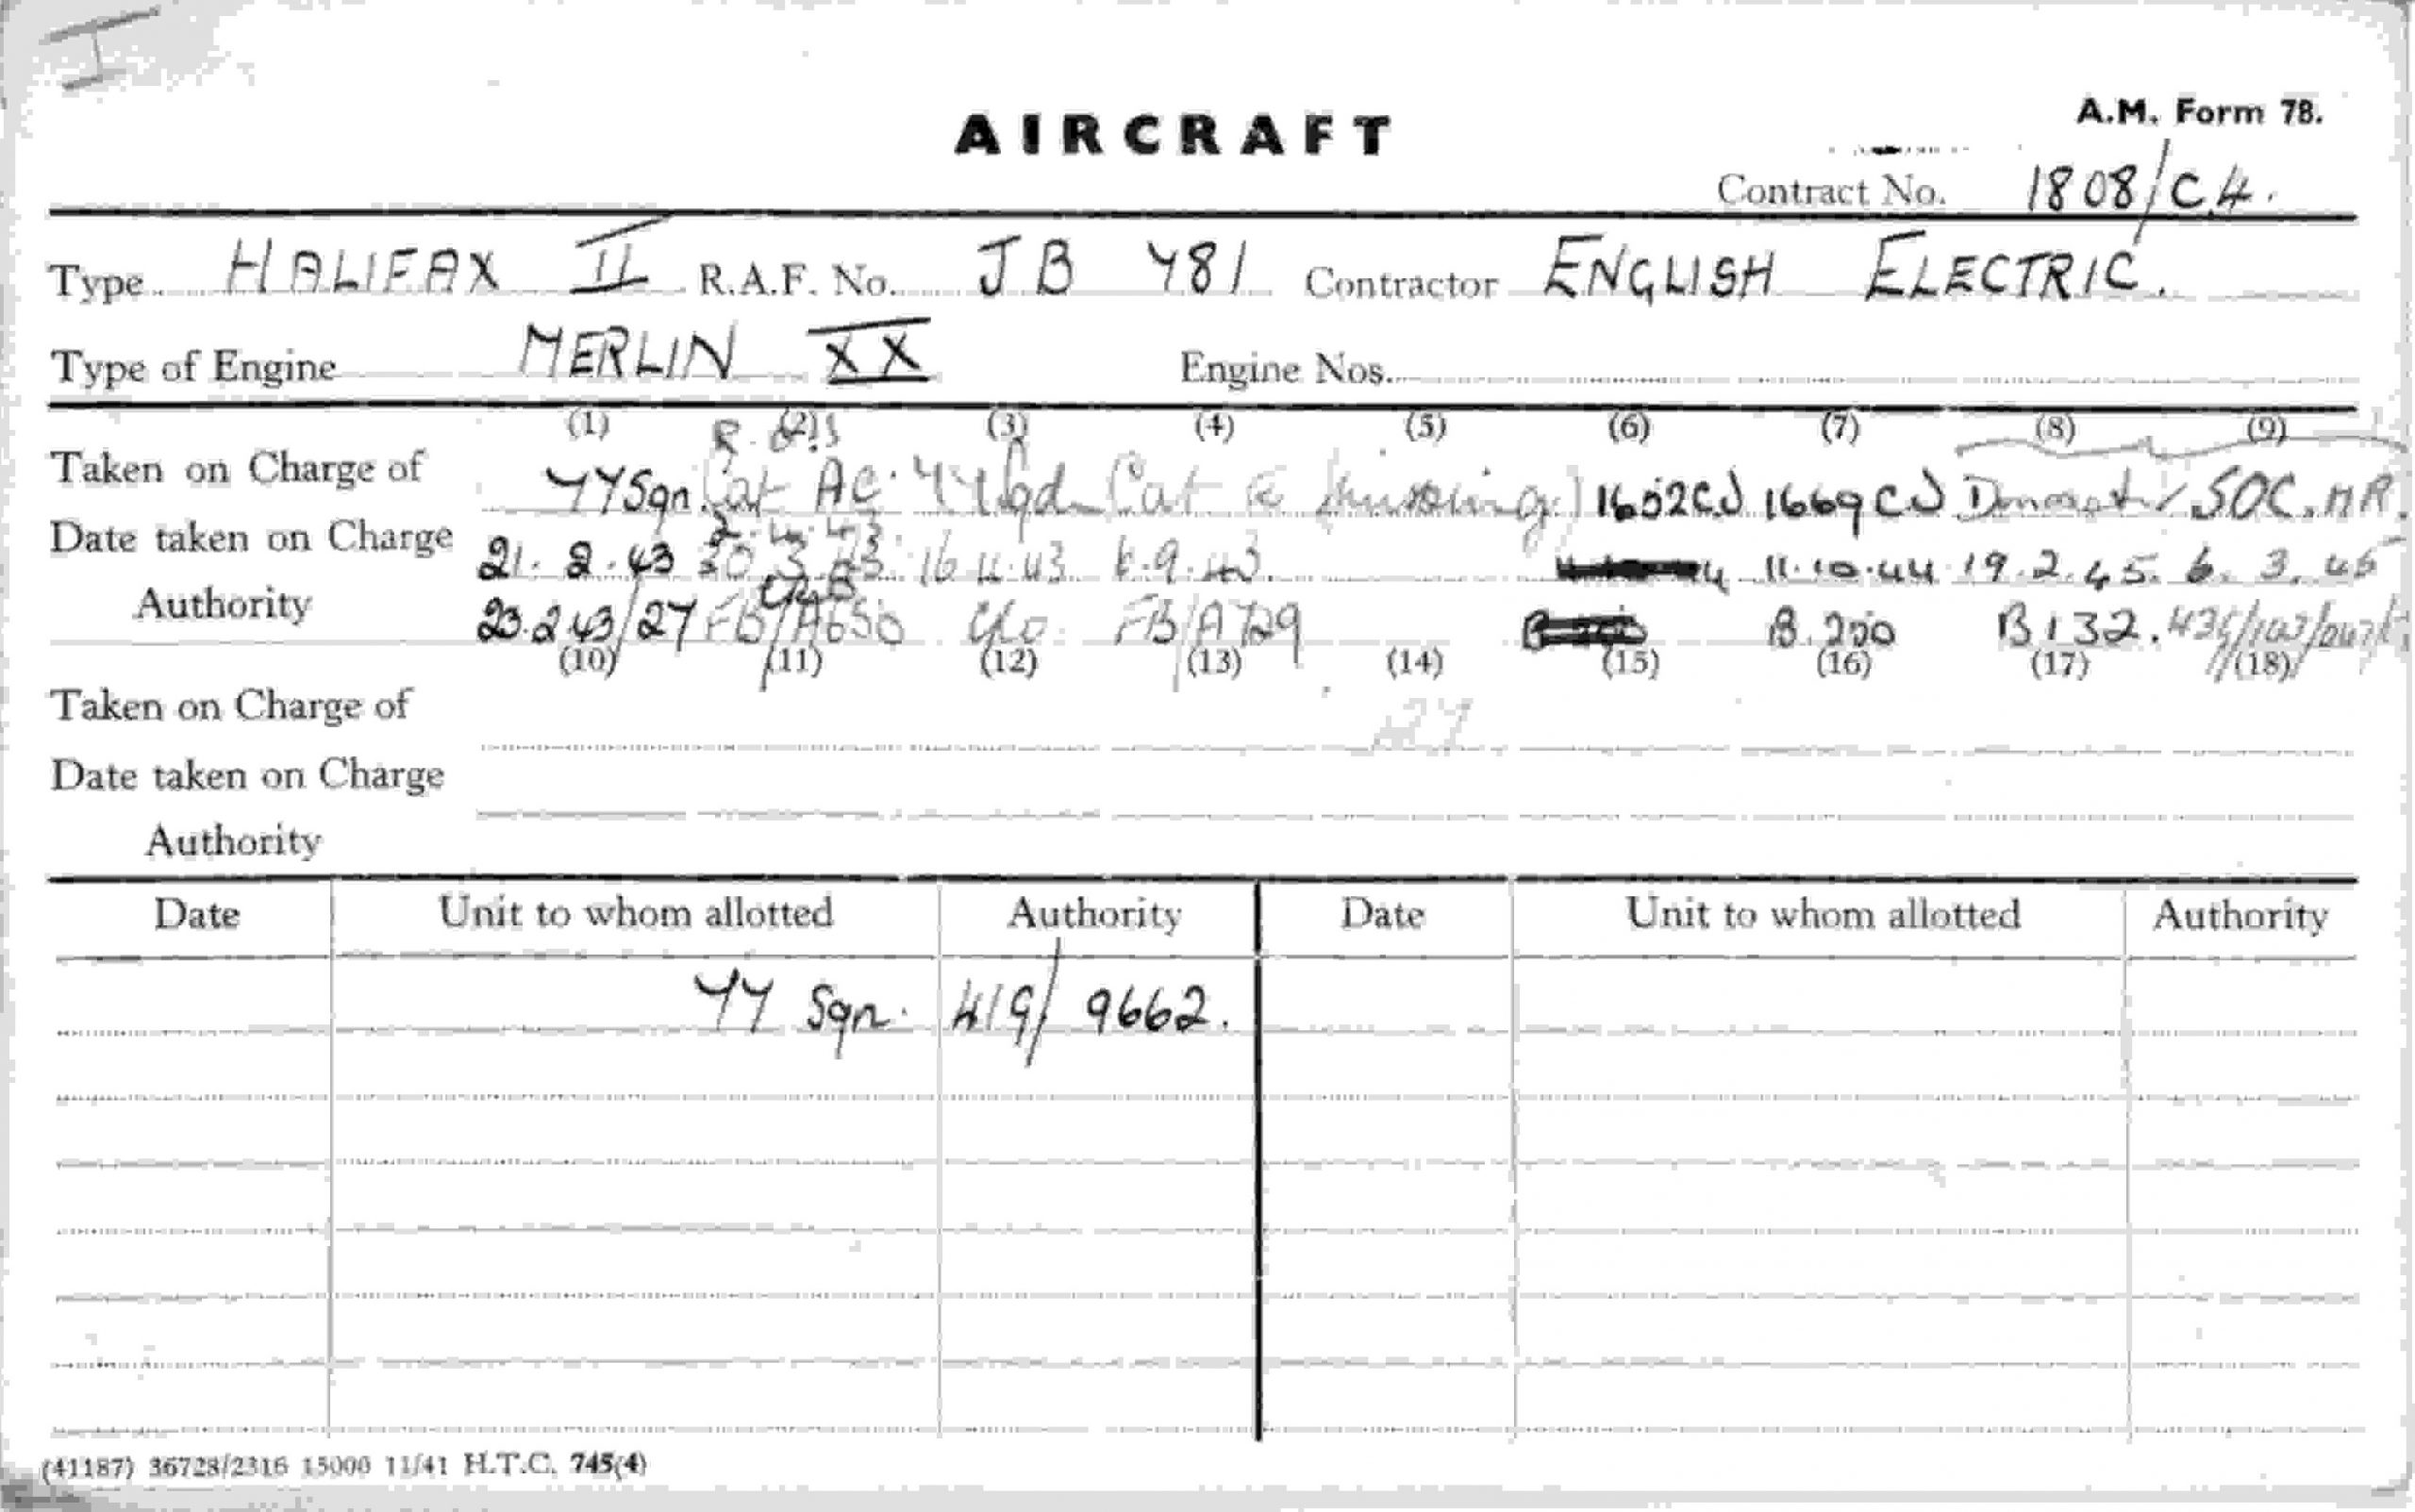 I
AIRCRAFT
A.M. Form 78.
Contract No. 1808/C.4.
Type HALIFAX II R.A.F. No. JB 781 Contractor ENGLISH ELECTRIC.
Type of Engine MERLIN XX Engine Nos.
(1) (2) (3) (4) (5) (6) (7) (8) (9)
Taken on Charge of 77 Sqn. Cat AC. 77 Sqd Cat missing) 1652CU 1669CU SOC. MR.
2.4.43
Date taken on Charge 21.2.43 30.3.43 16.4.43 6.9.43 11.10.44 19.2.45. 6.3.45
Authority 23.2.43/27 FB/A650 FB/A729 B.200 B.200 B132.
(10) (11) (12) (13) (14) (15) (16) (17) (18)
Taken on Charge of
Date taken on Charge
Authority
Date Unit to whom allotted Authority Date Unit to whom allotted Authority
77 Sqn. 41G/ 9662.
(41187) 36728/2316 15000 11/41 H.T.C. 745(4)